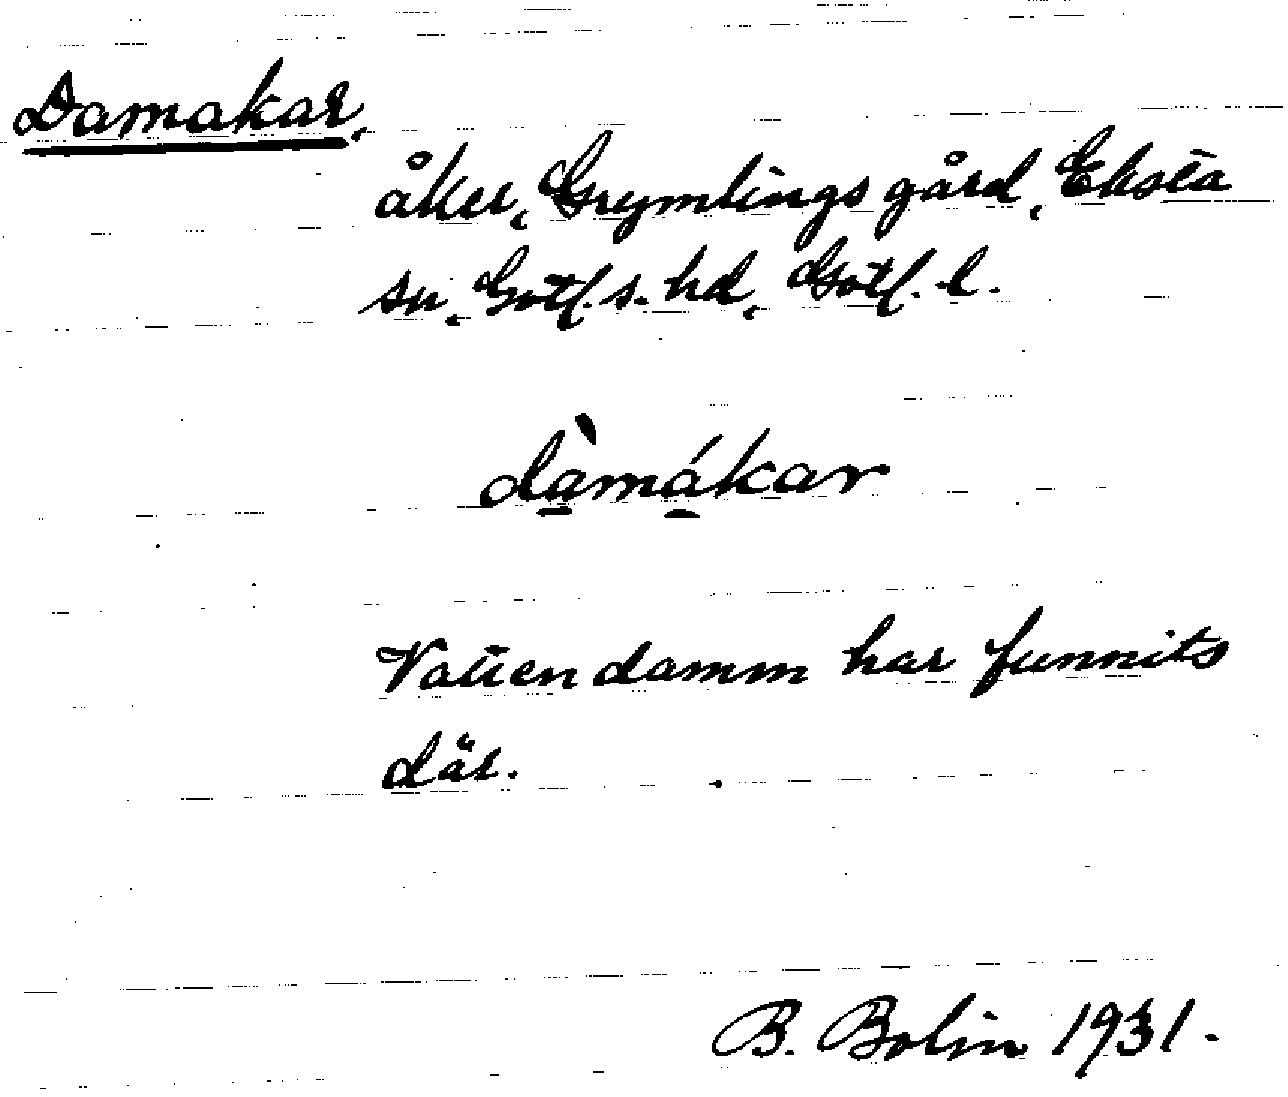 Damakar,
åker, Grymlings gård, Eksta
sn, Gotl. s. hd, Gotl. l.
dàmákar
Vattendamm har funnits
där.
B. Bolin 1931.